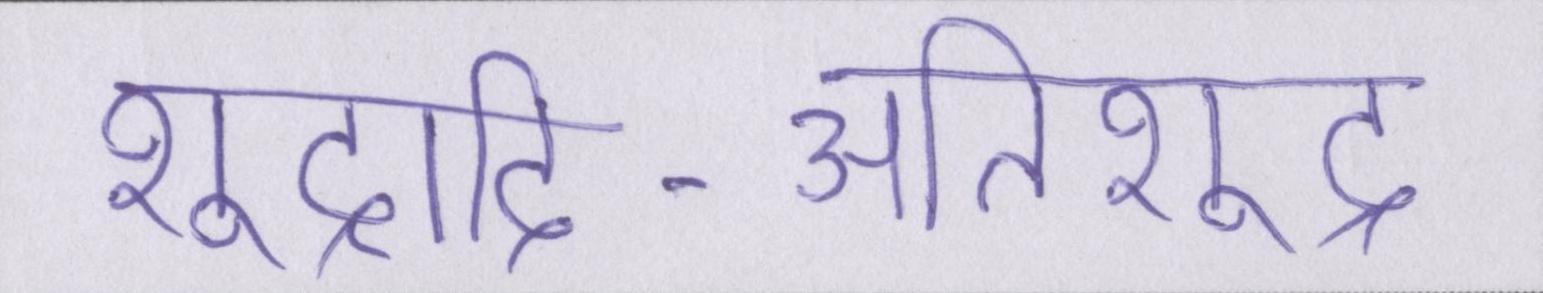 शूद्रादि-अतिशूद्र